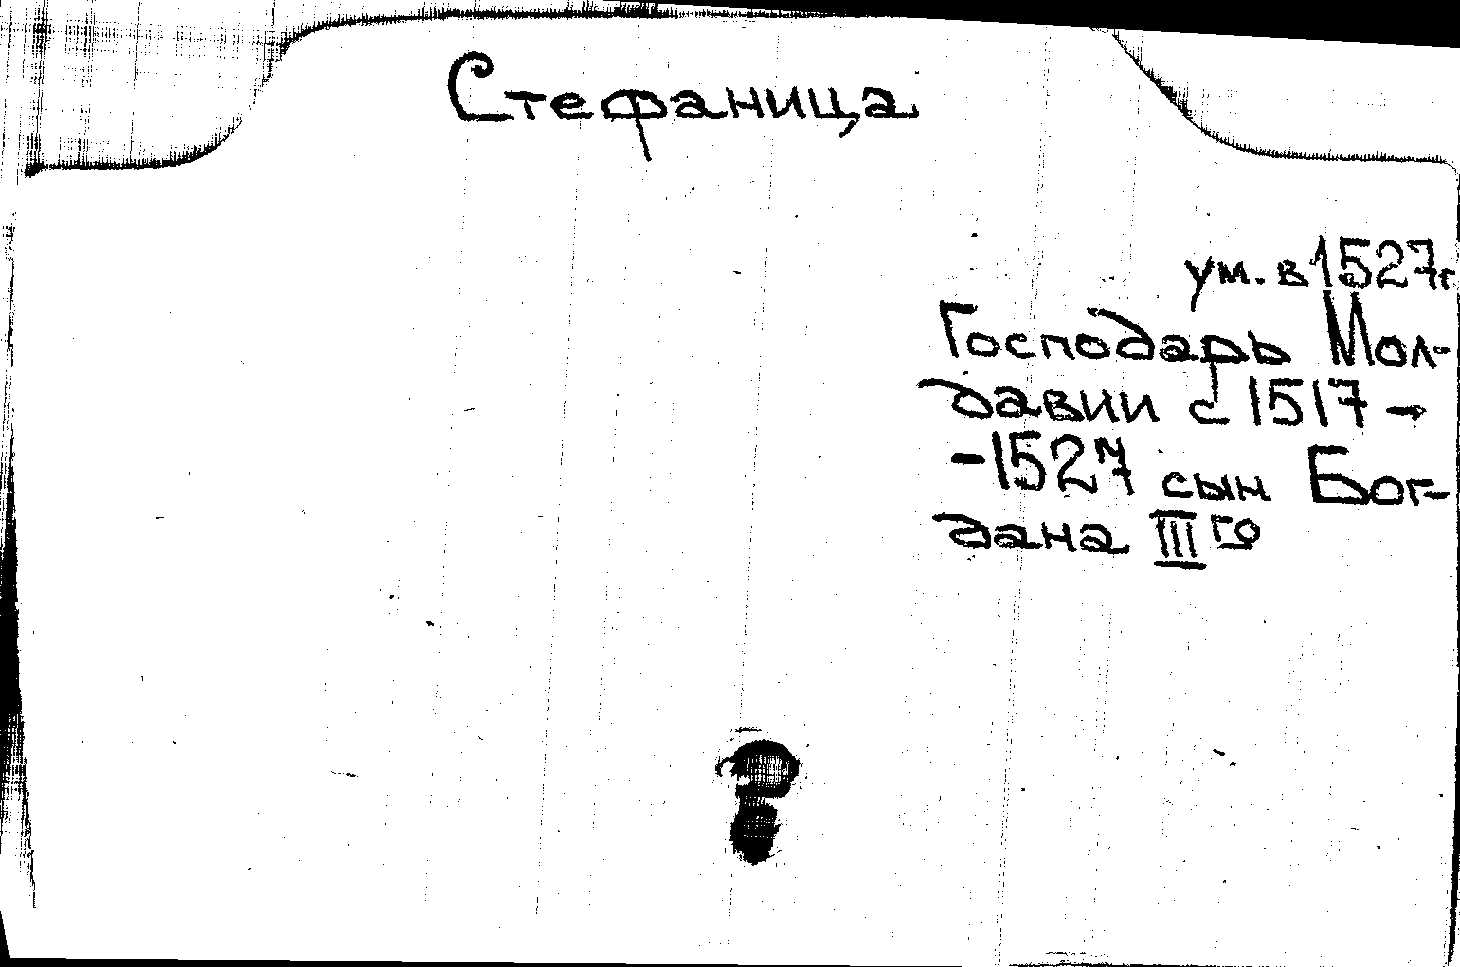 Стефаница
ум. в 1527 г
Господарь Мол-
давии с 1517 -
- 1527 сын Бог-
дана III го